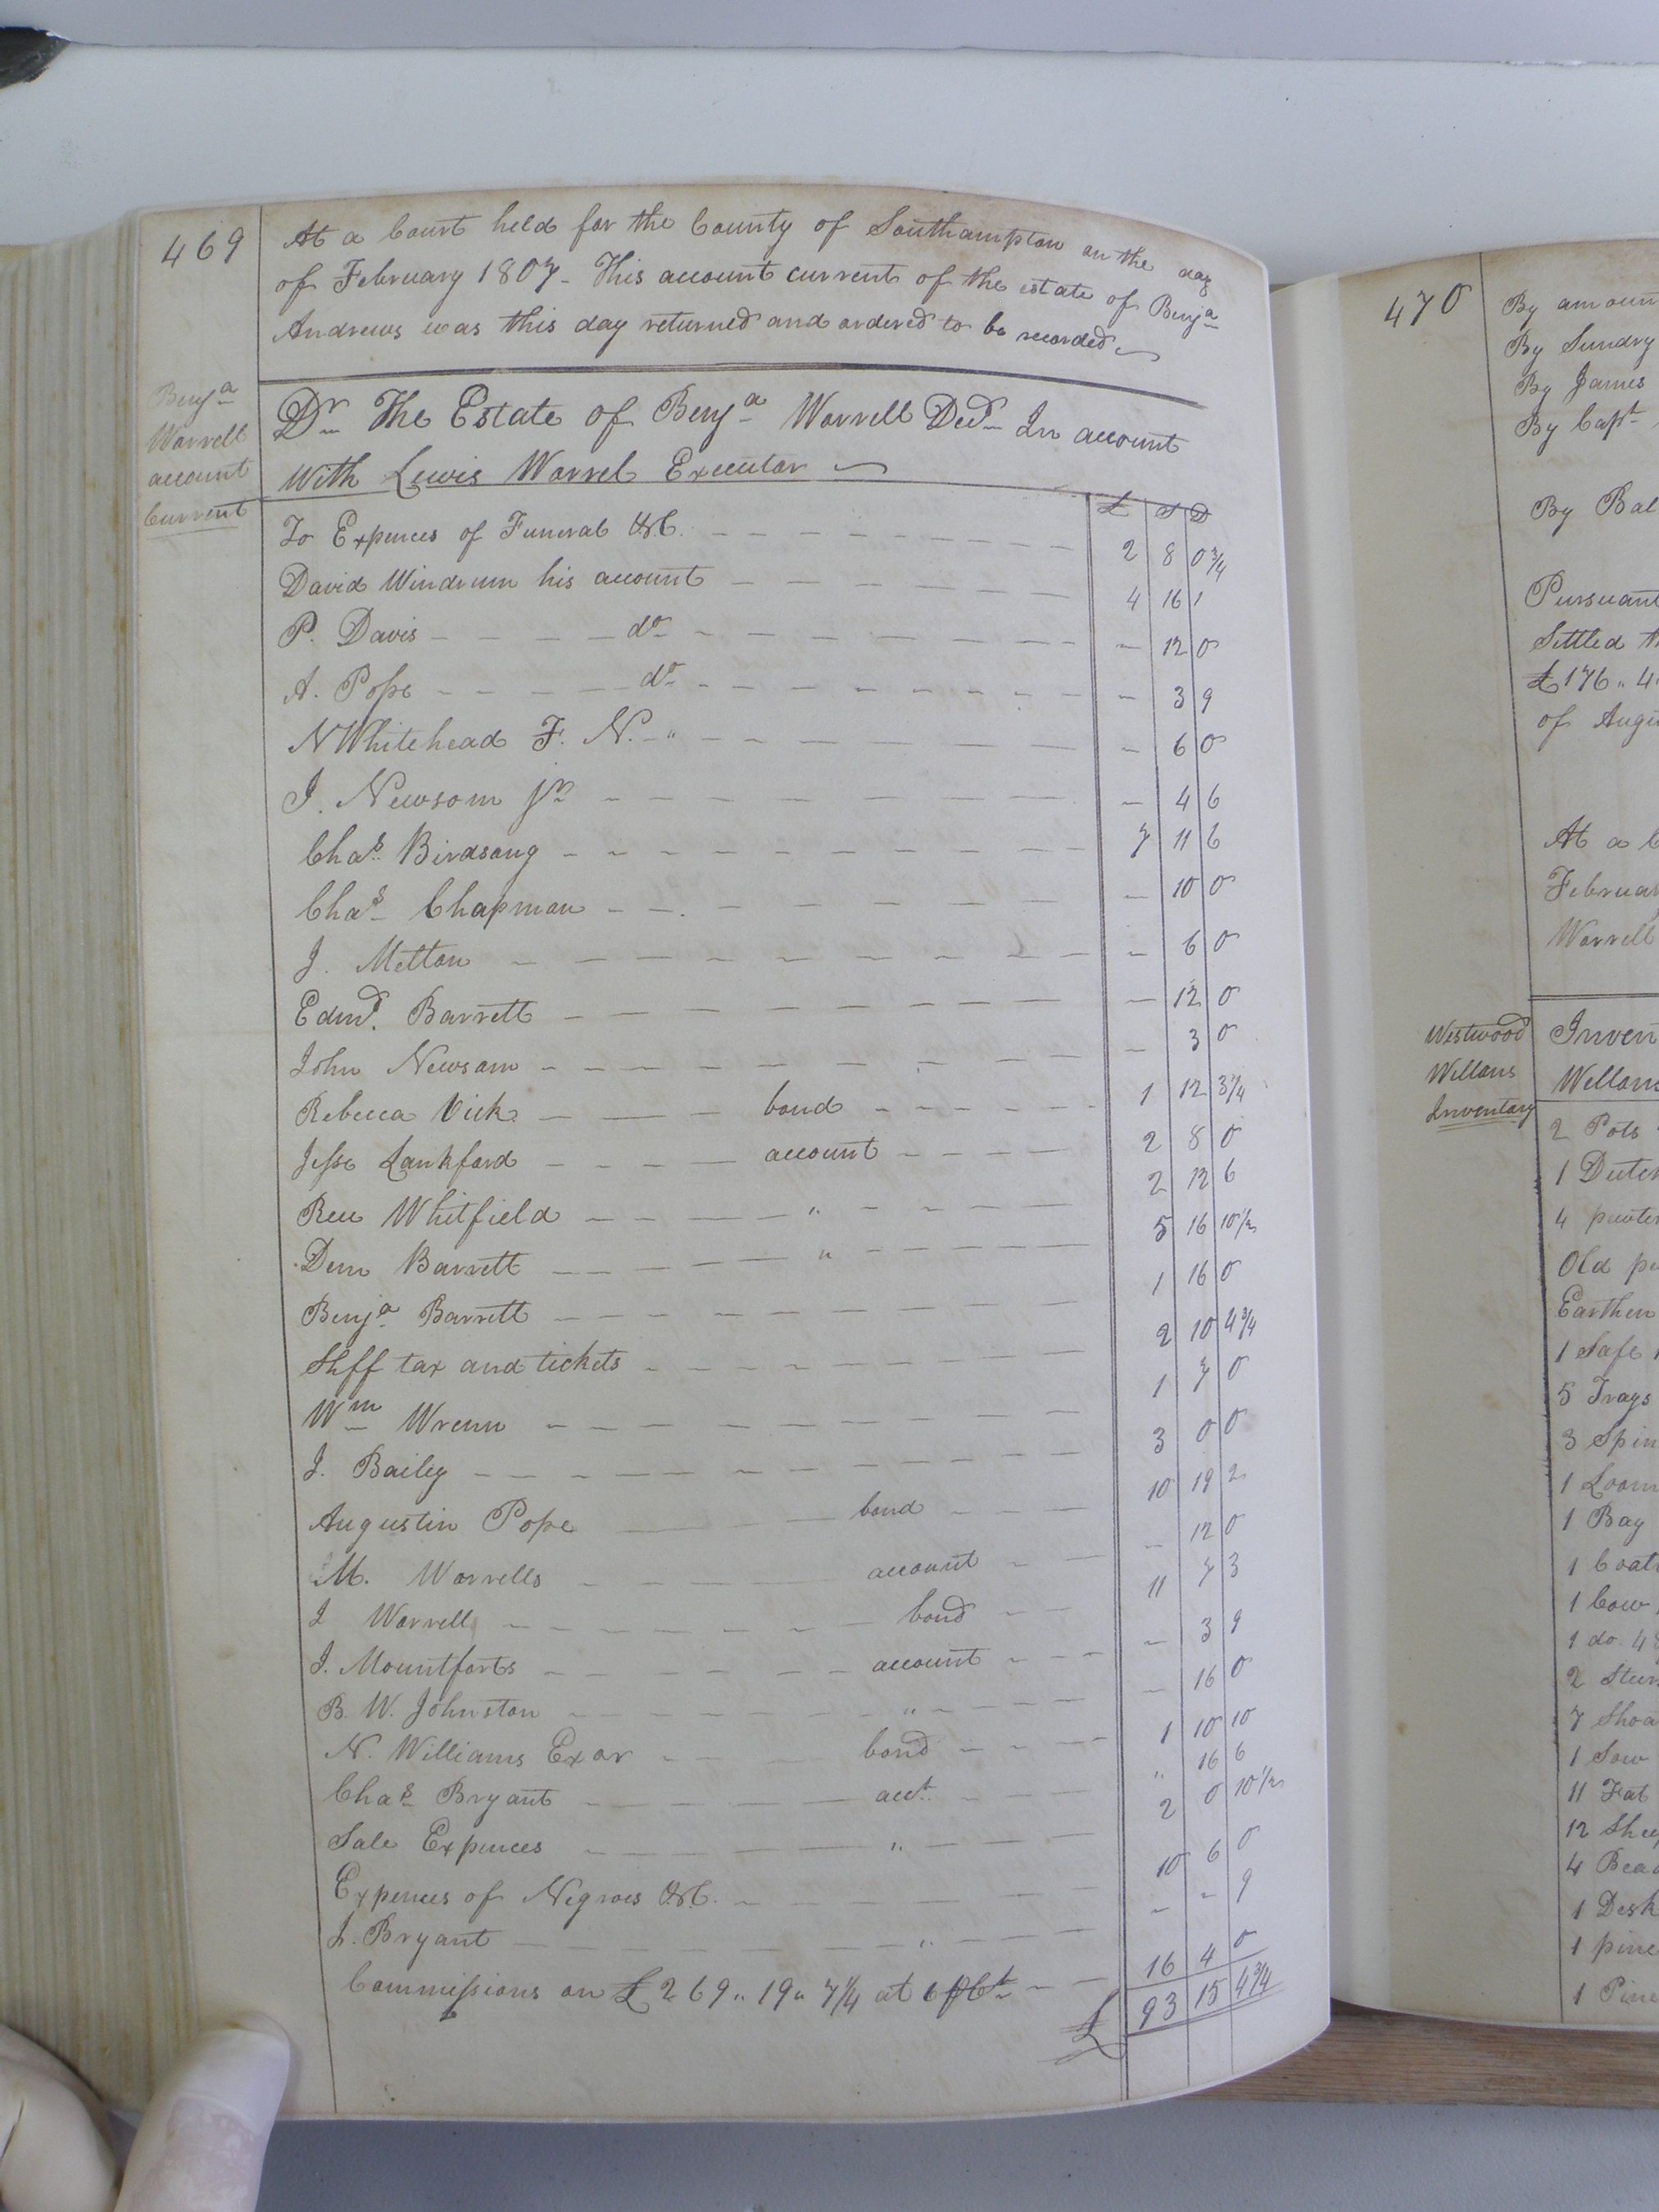 469
At a Court held for the County of Southampton on the day
of February 1807 - This account current of the estate of Benja
Andrews was this day returned and ordered to be recorded
Benja
Worrell
account
Current
Dr The Estate of Benja Worrell Decd In account
With Lewis Worrel Executor
£ S D
To Expences of Funeral &C. 2 8 0 3/4
David Windrum his account 4 16 1
P. Davis do - 12 0
A. Pope do - 3 9
N Whitehead F. N. " - 6 0
J. Newsom Jr - 4 6
Chas Birdsong 7 11 6
Chas Chapman - 10 0
J. Melton - 6 0
Edmd. Barrett - 12 0
John Newsom - 3 0
Rebecca Vick bond 1 12 3 3/4
Jesse Lankford account 2 8 0
Reu Whitfield " 2 12 6
Dem Barrett " 5 16 10 1/2
Benja Barrett 1 16 0
Shff tax and tickets 2 10 4 3/4
Wm Wrenn 1 7 0
J. Bailey 3 0 0
Augustin Pope bond 10 19 2
M. Worrells account - 12 0
L Worrell bond 11 7 3
J. Mountforts account - 3 9
B. W. Johnston " - 16 0
N. Williams Exor bond 1 10 10
Chas Bryant acct. " 16 6
Sale Expences " 2 0 10 1/2
Expences of Negroes &C. 10 6 0
J. Bryant " - - 9
Commissions on £269 " 19 " 7 1/4 at 6 pCt 16 4 0
£ 93 15 4 3/4
470
By amoun
By Sundry
By James
By Capt
By Bal
Pursuant
Settled th
£176 " 4
of Augu
At a C
February
Worrell
Westwood
Wellons
Inventory
Inven
Wellons
2 Pots
1 Dutch
4 pewter
Old pe
Earthen
1 Safe 1
5 Trays
3 Spin
1 Loom
1 Bay
1 Coat
1 Cow
1 do. 48
2 Steer
7 Shoa
1 Sow
11 Fat
12 Shee
4 Bead
1 Desk
1 pine
1 Pine